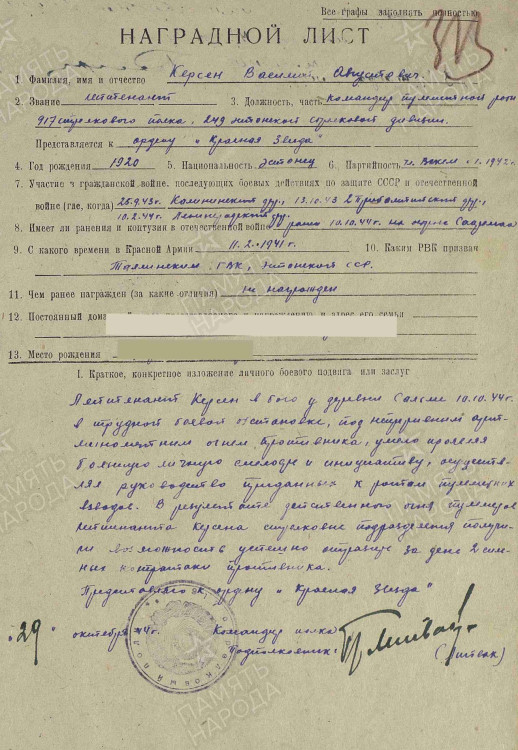 Все графы заполнять полностью
313
НАГРАДНОЙ ЛИСТ
1. Фамилия, имя и отчество Керсен Василий Августович
2. Звание лейтенант 3. Должность, часть командир пулеметной роты
917 стрелкового полка, 249 эстонской стрелковой дивизии.
Представляется к ордену "Красная Звезда"
4. Год рождения 1920 5. Национальность эстонец 6. Партийность чл. ВКП(б) с 1942 г.
7. Участие в гражданской войне, последующих боевых действиях по защите СССР и отечественной
войне (где, когда) 25.9.43г. Калининский фр., 13.10.43 2 Прибалтийский фр.,
10.2.44г. Ленинградский фр.
8. Имеет ли ранения и контузии в отечественной войне ранен 10.10.44г. на
9. С какого времени в Красной Армии 11.2.1941г. 10. Каким РВК призван
Таллинским ГВК, Эстонской ССР.
11. Чем ранее награжден (за какие отличия) не награжден
12. Постоянный и адрес его семьи
13. Место рождения
I. Краткое, конкретное изложение личного боевого подвига или заслуг
Лейтенант Керсен в бою у деревни 10.10.44г.
в трудной боевой обстановке, под непрерывным арт-
минометным огнем противника, умело проявляя
большую личную смелость и инициативу, осуществ-
лял руководство приданных к ротам пулеметных
взводов. В результате действенного огня пулеметов
лейтенанта Керсена стрелковые подразделения получи-
ли возможность успешно отразить за день 2 силь-
ных контратаки противника.
Представляю к ордену "Красная Звезда"
"29" октября 44г. Командир полка
Подполковник: (Литвак)
ПАМЯТЬ
НАРОДА